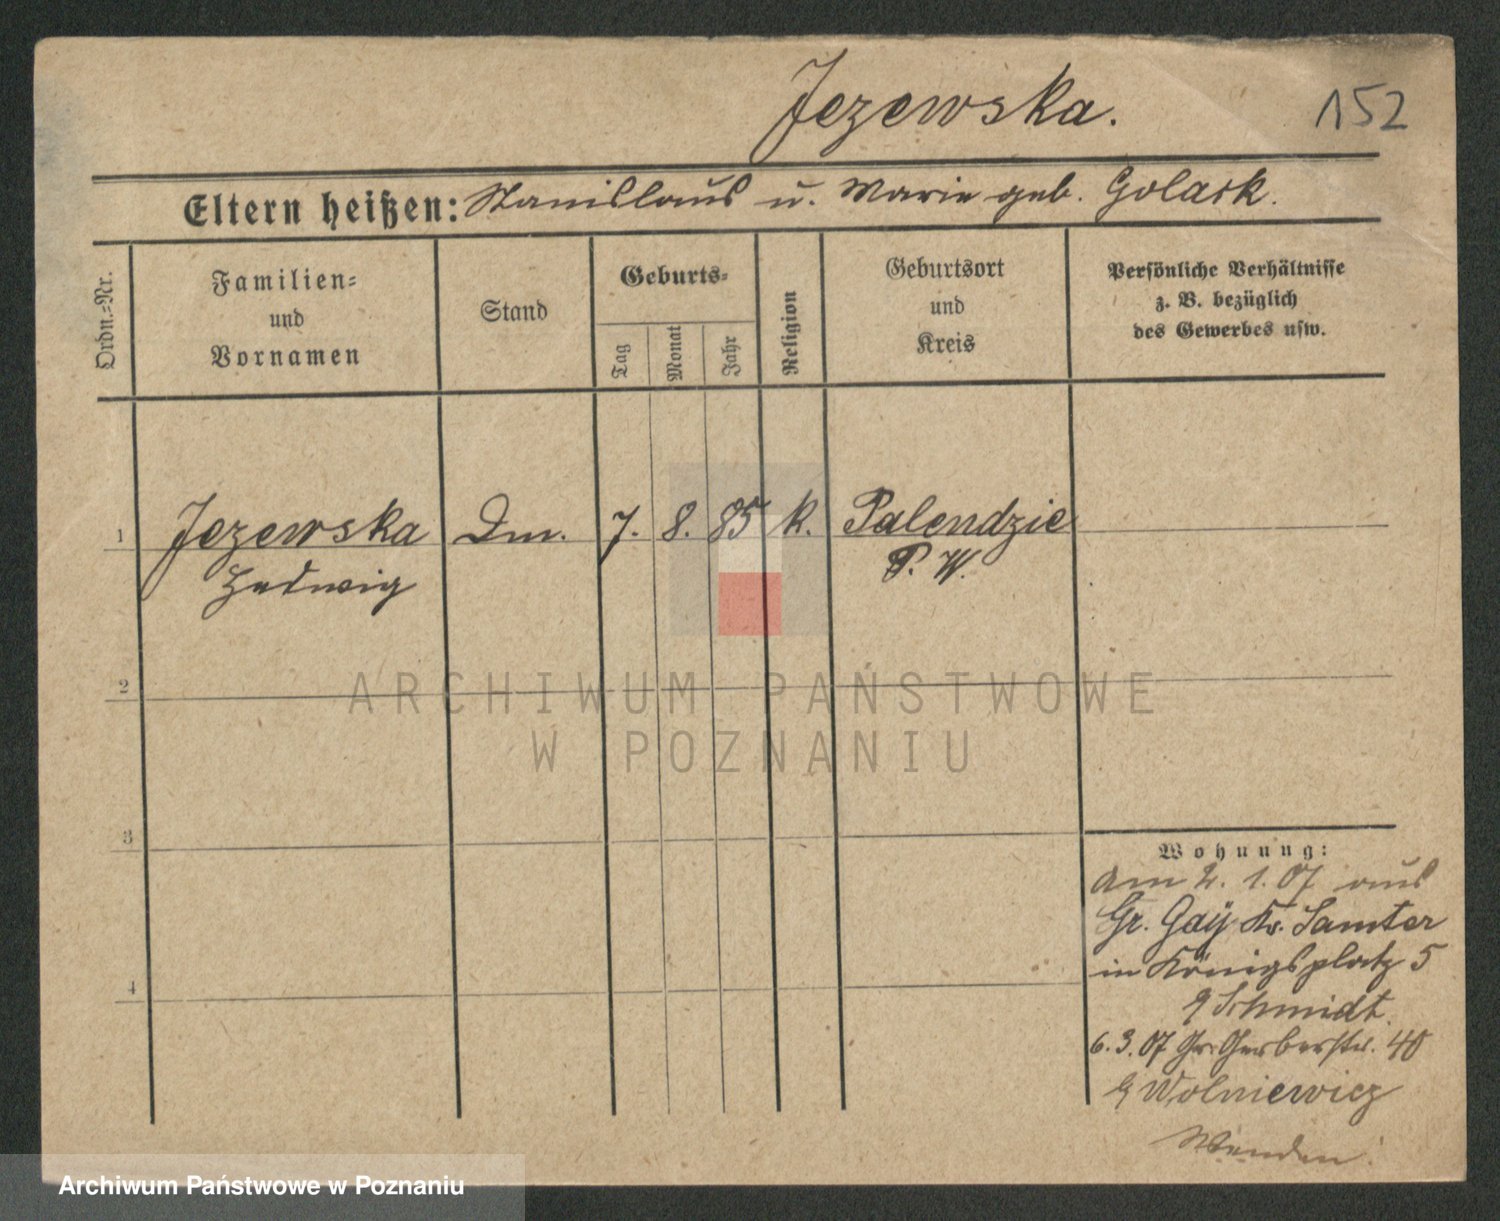 Jezewska.
152
Eltern heißen: Stanislaus u. Marie geb. Golask.
Ordn.-Nr.
Familien-
und
Vornamen
Stand
Geburts-
Tag
Monat
Jahr
Religion
Geburtsort
und
Kreis
Persönliche Verhältnisse
z. B. bezüglich
des Gewerbes usw.
1 Jezewska Dm. 7. 8. 85 k. Palendzie
Hedwig P. W.
2
ARCHIWUM PAŃSTWOWE
W POZNANIU
3
4
Wohnung:
am 2. 1. 07 aus
Gr. Gay Kr. Samter
in Königsplatz 5
Schmidt.
6.3.07 Gr. Gerberstr. 40
Wolniewicz
Wenden.
Archiwum Państwowe w Poznaniu